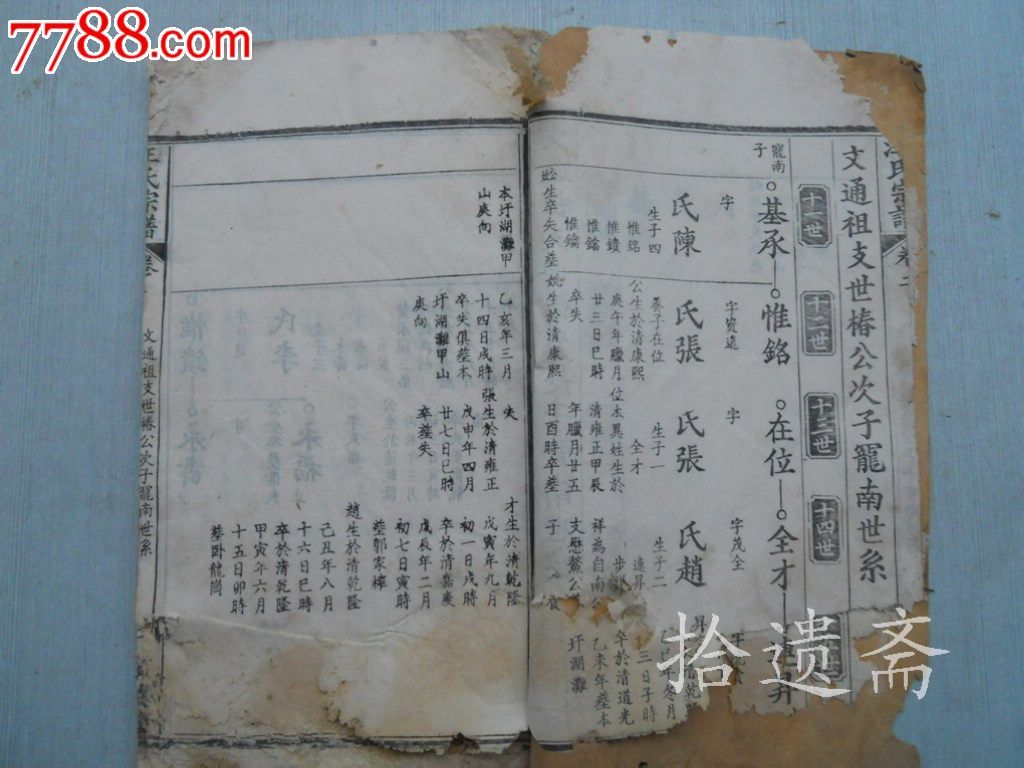 7788.com
氏宗譜
卷二
文通祖支世椿公次子寵南世系
十一世
十二世
十三世
十四世
寵南子
基承
惟銘
在位
全才
連昇
字
字資遠
字
字茂全
氏陳
氏張
氏張
氏趙
生子四
惟銘
惟鐀
惟鐺
惟鑰
養子在位
公生於清康熙
庚午年臘月
廿三日巳時
卒失
妣生於清康熙
生卒失合塟
生子一
全才
位本異姓生於
清雍正甲辰
年臘月廿五
日酉時卒塟
生子二
連昇
步
祥為自南公
支懸鰲公
子
冬月
十三日子時
卒於清道光
乙未年塟本
圩湖灘
本圩湖灘甲
山庚向
乙亥年三月
十四日戌時
卒失俱塟本
圩湖灘甲山
庚向
失
張生於清雍正
戊申年四月
廿七日巳時
卒塟失
才生於清乾隆
戊寅年九月
初一日戌時
卒於清嘉慶
戊辰年二月
初七日寅時
塟郭家檸
趙生於清乾隆
己丑年八月
十六日巳時
卒於清乾隆
甲寅年六月
十五日卯時
塟卧龍崗
文通祖支世椿公次子寵南世系
氏宗譜
卷
拾遗斋